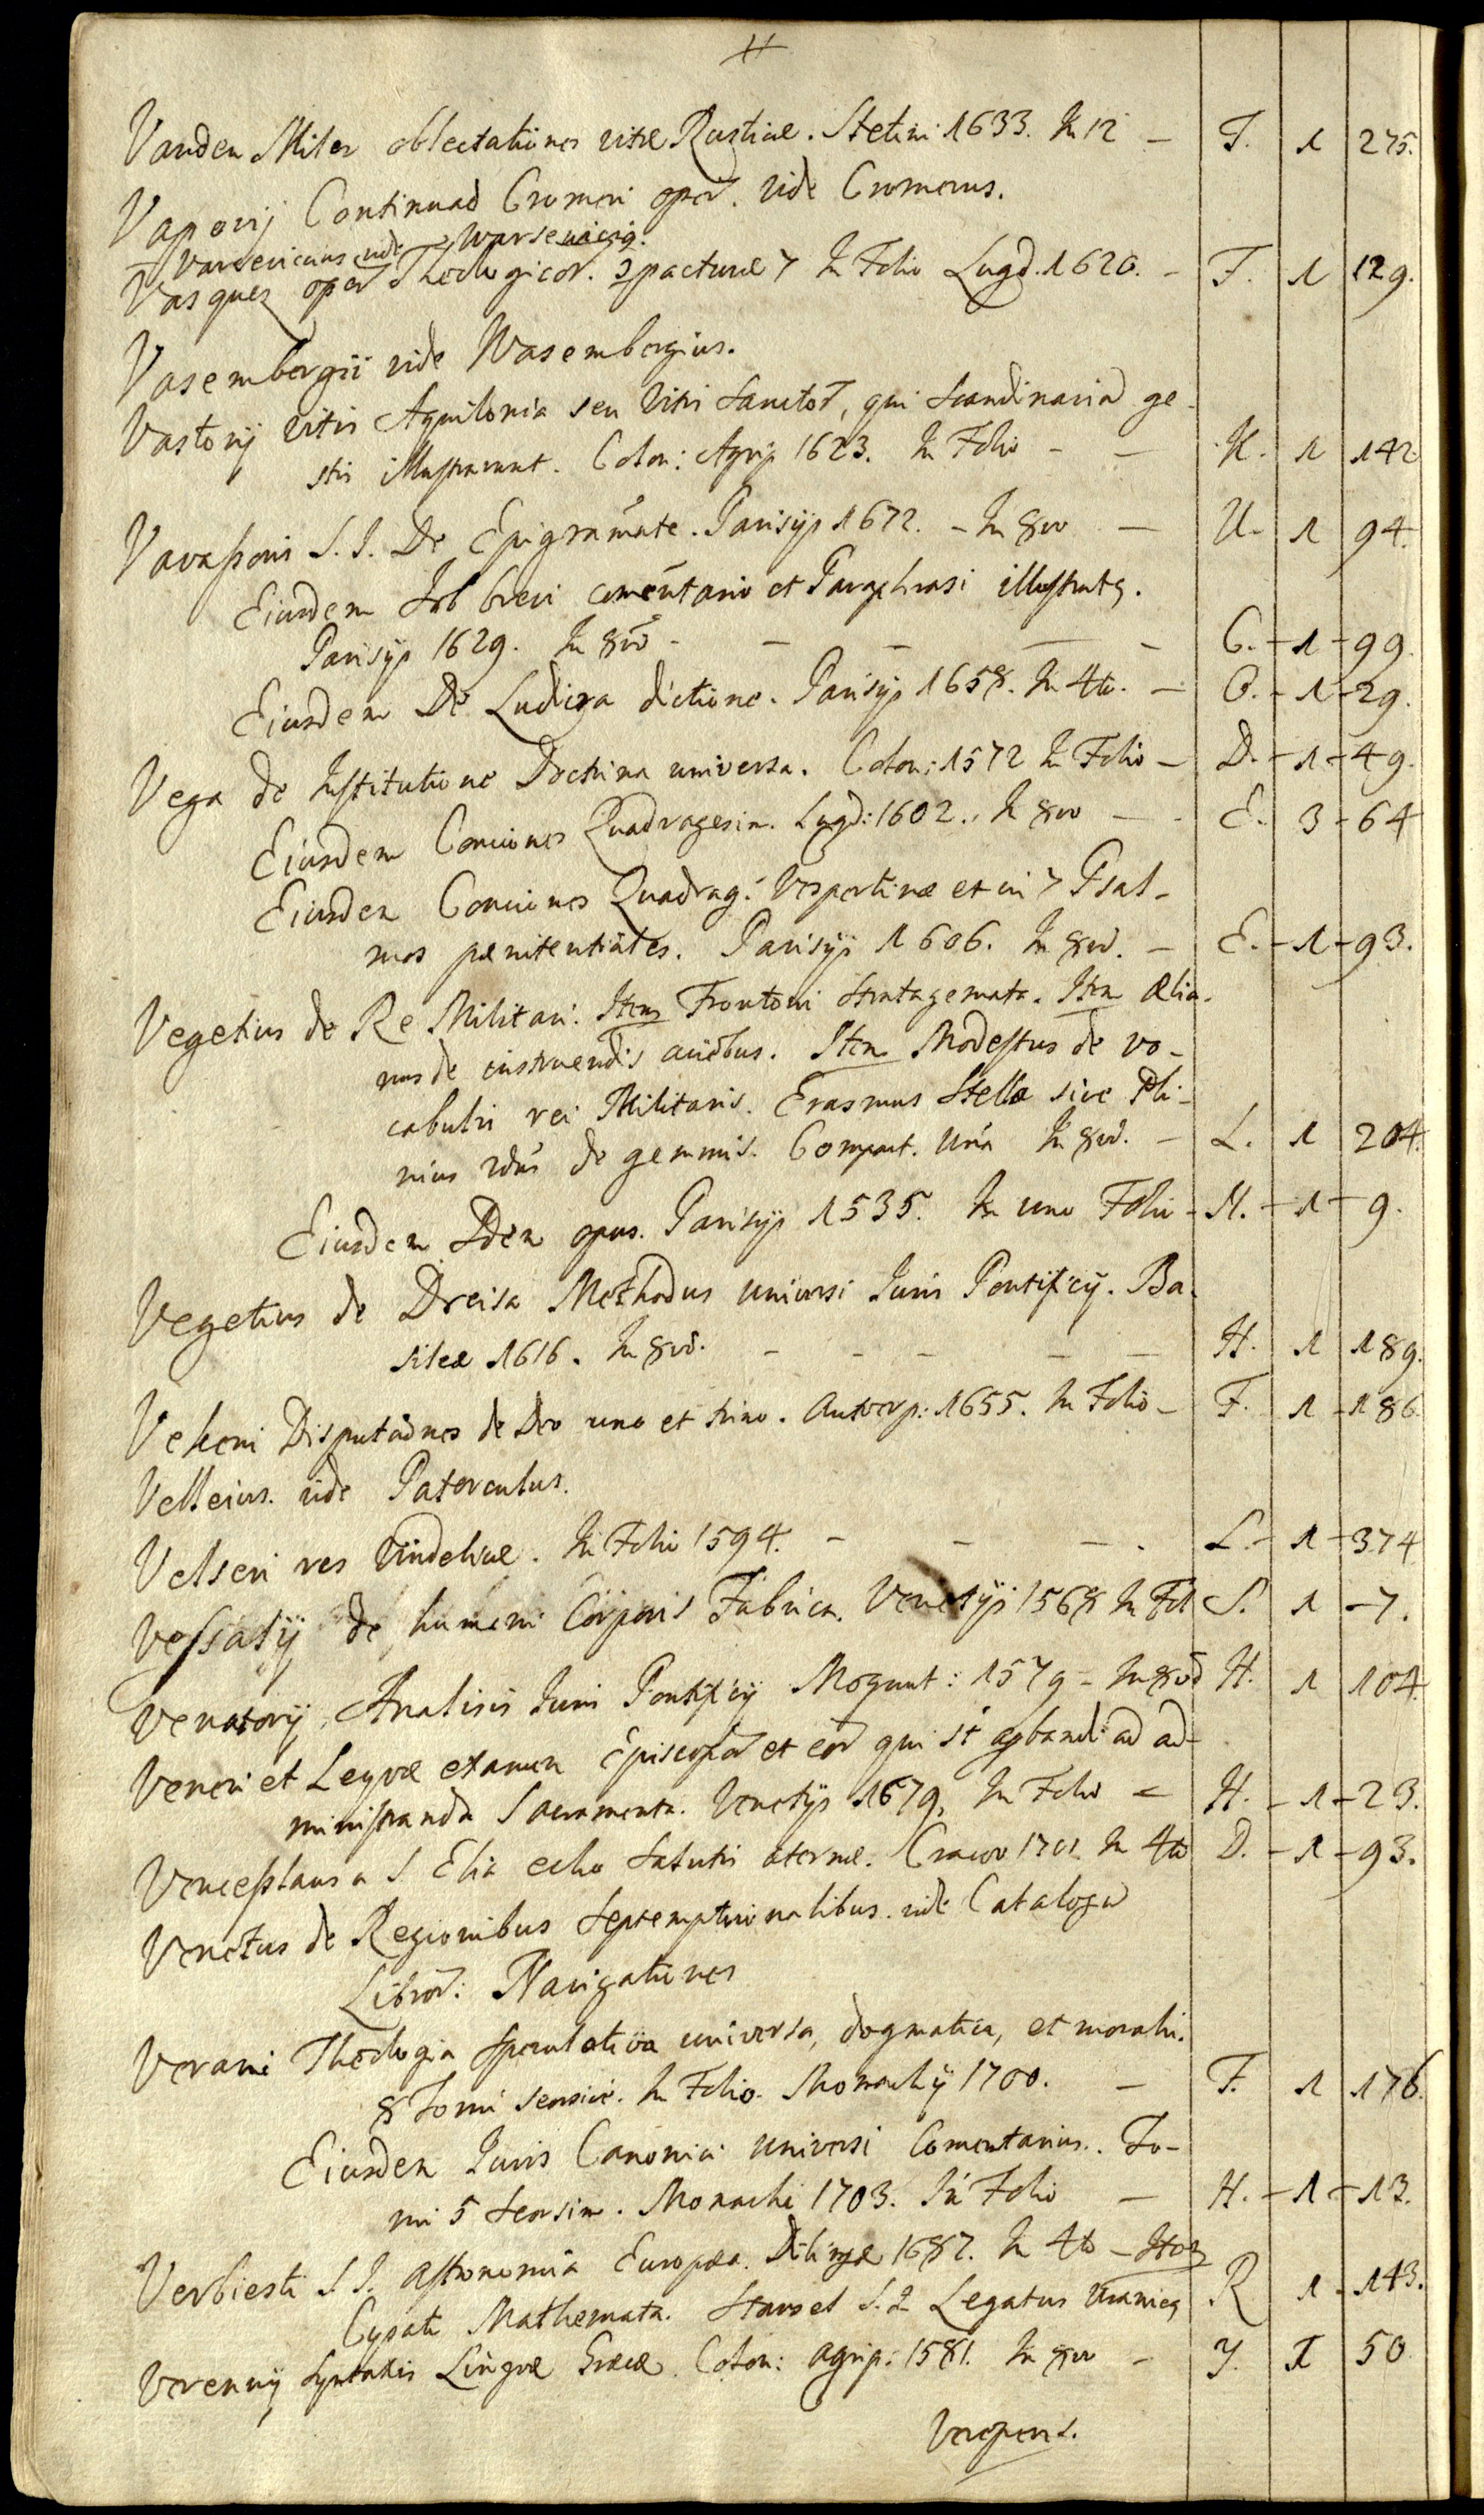 Vanden Miler oblectationes vitæ Rusticæ. Stetini 1633. In 12 – F. 1 275.
Vapovij Continuad Cromeri oper. vide Cromerus.
Varsevicius vide Warsevicig.
Vasquez oper Theologicor. 3 pacturæ 7 In Folio Lugd. 1620. – F. 1 129.
Vasembergii vide Wasembergius.
Vastovij Vitis Aquilonia seu Vitæ Sanctor, qui Scandinaviâ ge-
stis illustrarunt. Colon: Agrip 1623. In Folio – – K. 1 142
Vavassoris S. J. De Epigramate. Parisijs 1672. – In 8vo – U. 1 94.
Eiusdem Iob brevi comentario et Paraphrasi illustratg.
Parisijs 1629. In 8vo – – – – – C. – 1 – 99.
Eiusdem De Ludicra dictione. Parisijs 1658. In 4to. – O. – 1 – 29.
Vega de Institutione Doctrina universa. Colon: 1572 In Folio – D. – 1 – 49.
Eiusdem Conciones Quadragesim. Lugd: 1602. In 8vo – E. 3 – 64
Eiusdem Conciones Quadrag: Vespertinæ et in 7 Psal-
mos pænitentiales. Parisijs 1606. In 8vo. – E. – 1 – 93.
Vegetius de Re Militari. Item Frontoni Stratagemata. Item Ælia-
nus de instruendis aciebus. Item Modestus de vo-
cabulis rei Militaris. Erasmus Stella sive Pli-
nius de gemmis. Compact. Unà In 8vo. – L. 1 204.
Eiusdem Idem opus. Parisijs 1535. In uno Folio – M. – 1 – 9.
Vegetius de Dreisa Methodus universi Juris Pontificij. Ba-
sileæ 1616. In 8vo. – – – – – H. 1 189.
Vekeni Disputaones de Deo uno et trino. Antverp: 1655. In Folio – F. 1 – 186.
Velleius. vide Paterculus.
Velseri res Vindelicæ. In Folio 1594. – – – . L. – 1 – 374
Vessalij de humani Corporis Fabrica. Venetijs 1568 In Fol S. 1 – 7.
Venatorij Analisis Juris Pontificij Mogunt: 1579 – In 8vo H. 1 104.
Veneri et Leyvæ examen Episcopor et eor qui st apband: ad ad-
ministranda Sacramenta. Venetijs 1679. In Folio – H. – 1 – 23.
Venceslaus a S Elia echo Salutis æternæ. Cracov 1701 In 4to D. – 1 – 93.
Venetus de Regionibus Septemptrionalibus. vide Catalogu
Libror: Navigationes
Verani Theologia Speculativa universa, dogmatica, et moralis.
8 Tomi seorsive. In Folio. Monachij 1700. – F. 1 176.
Eiusdem Juris Canonici universi Comentarius. To-
mi 5 Seorsim. Monachi 1703. In Folio – H. – 1 – 13.
Verbiesti S J. Astronomia Europæa. Dilingæ 1687. In 4to – Item
Cysati Mathemata. Stansel S. J Legatus Uranicg R 1 – 143.
Verennij Syntaxis Lingvæ Græcæ. Colon: Agrip: 1581. In 8vo – Y. 1 50